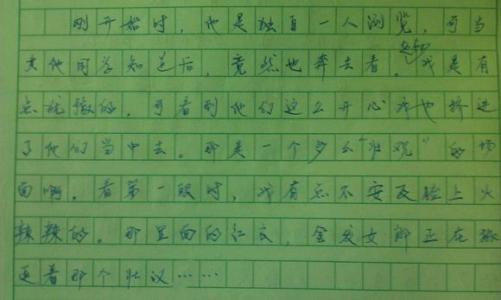 刚开始时，他是独自一人浏览，可当
其他同学知道后，竟然也奔去看。我是有
点犹豫的，可看到他们这么开心我也挤进
了他们当中去。那是一个多么“壮观”的场
面啊。看第一眼时，我有点不安及脸上火
辣辣的。那里面的红衣，金发女郎正在
追着那个壮汉……